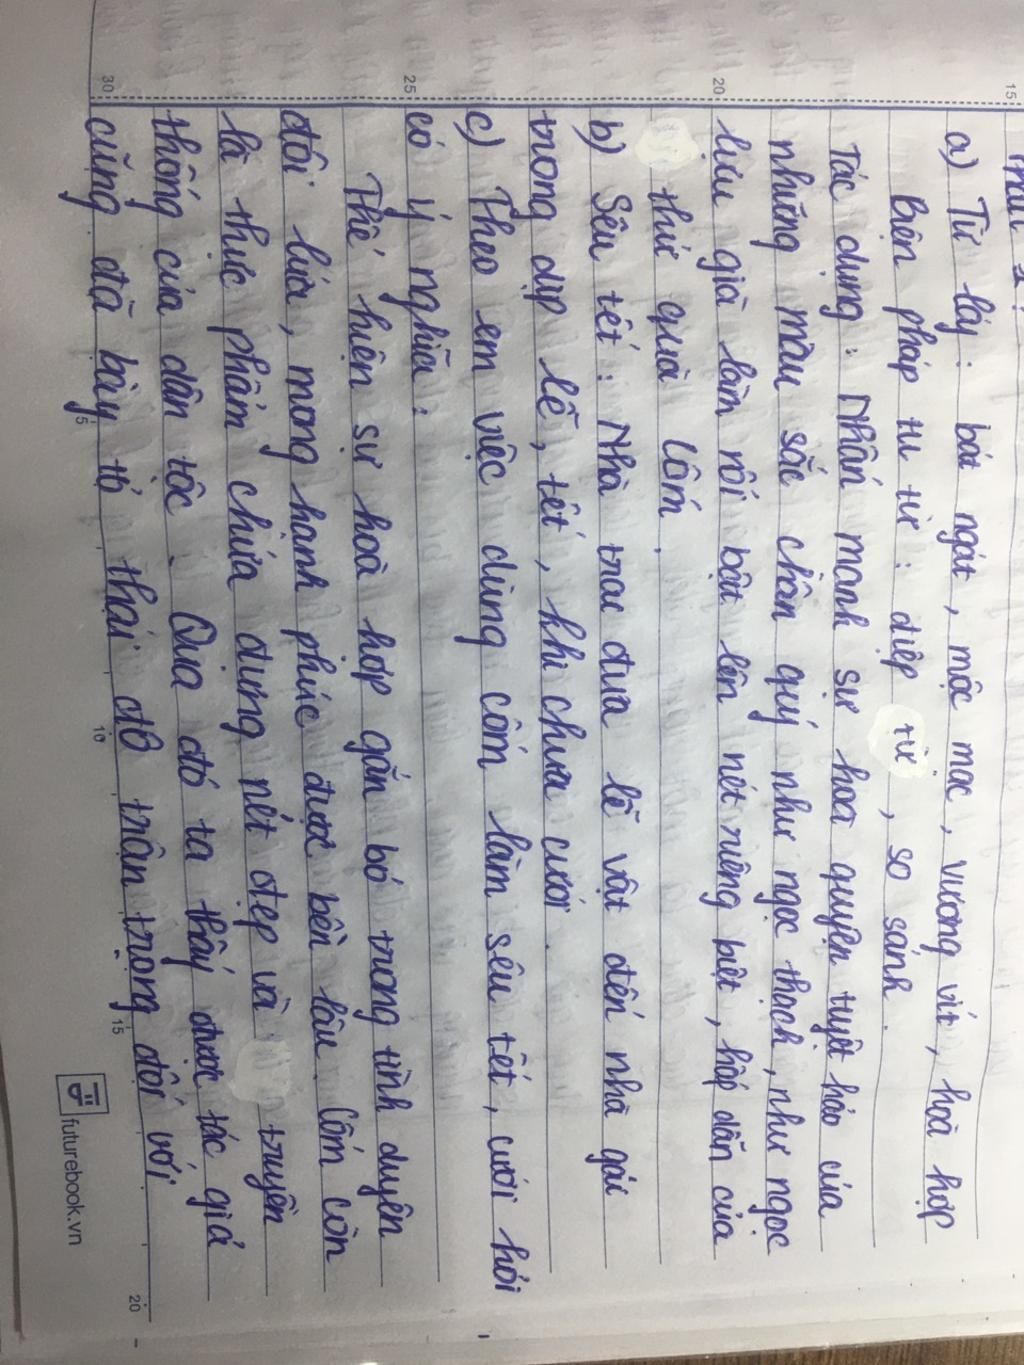 15
a) Từ láy : bát ngát, mộc mạc, vương vít, hoà hợp
Biện pháp tu từ : điệp từ, so sánh.
Tác dụng : Nhấn mạnh sự hoà quyện tuyệt hảo của
những màu sắc chân quý như ngọc thạch, như ngọc
20
lựu già làm nổi bật lên nét riêng biệt, hấp dẫn của
thứ quà cốm.
b) Sêu tết : Nhà trai đưa lễ vật đến nhà gái
trong dịp lễ, tết, khi chưa cưới.
c) Theo em việc dùng cốm làm sêu tết, cưới hỏi
25
có ý nghĩa :
Thể hiện sự hoà hợp gắn bó trong tình duyên
đôi lứa, mong hạnh phúc được bền lâu. Cốm còn
là thực phẩm chứa đựng nét đẹp và truyền
thống của dân tộc. Qua đó ta thấy được tác giả
30
cũng đã bày tỏ thái độ trân trọng đối với
5 10 15 20
futurebook.vn